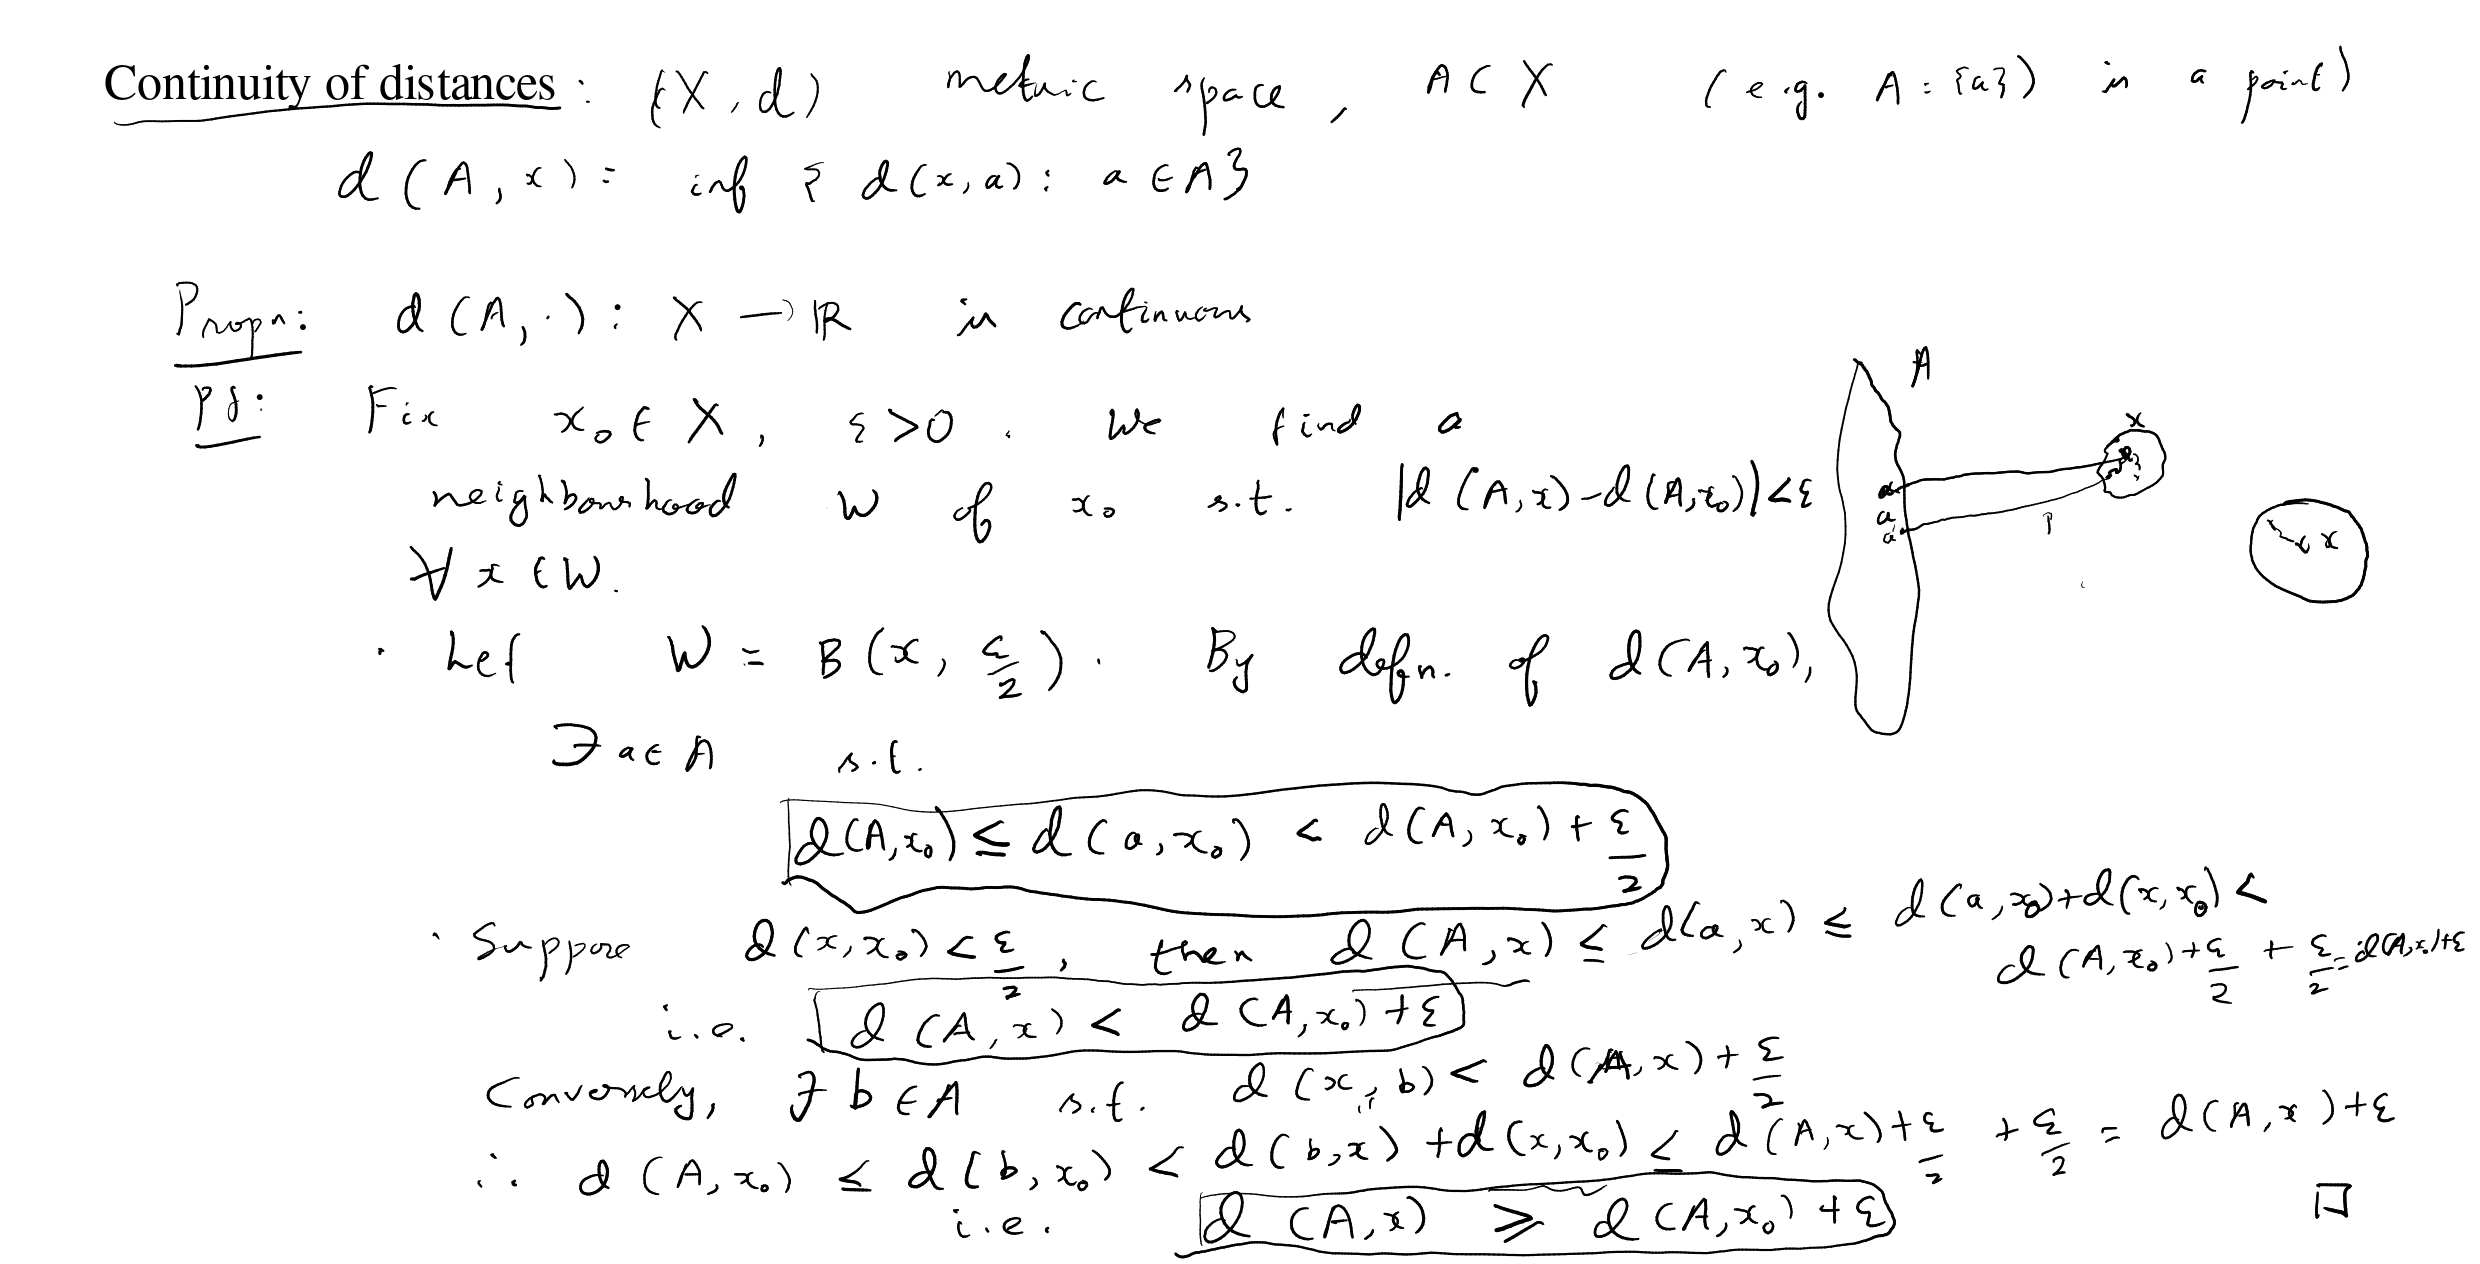 Continuity of distances : (X, d) metric space, A ⊂ X (e.g. A = {a}) is a point)
d(A, x) = inf { d(x, a) : a ∈ A}
Propn: d(A, ·) : X → ℝ is continuous
Pf: Fix x₀ ∈ X, ε > 0. We find a
neighbourhood W of x₀ s.t. |d(A, x) - d(A, x₀)| < ε
∀ x ∈ W.
A
x
a
a
a
x
· Let W = B(x, ε/2). By defn. of d(A, x₀),
∃ a ∈ A s.t.
d(A, x₀) ≤ d(a, x₀) < d(A, x₀) + ε/2
· Suppose d(x, x₀) < ε/2, then d(A, x) ≤ d(a, x) ≤ d(a, x₀) + d(x, x₀) <
d(A, x₀) + ε/2 + ε/2 = d(A, x₀) + ε
i.e. d(A, x) < d(A, x₀) + ε
Conversely, ∃ b ∈ A s.t. d(x, b) < d(A, x) + ε/2
∴ d(A, x₀) ≤ d(b, x₀) < d(b, x) + d(x, x₀) ≤ d(A, x) + ε/2 + ε/2 = d(A, x) + ε
i.e. d(A, x) ≥ d(A, x₀) + ε □